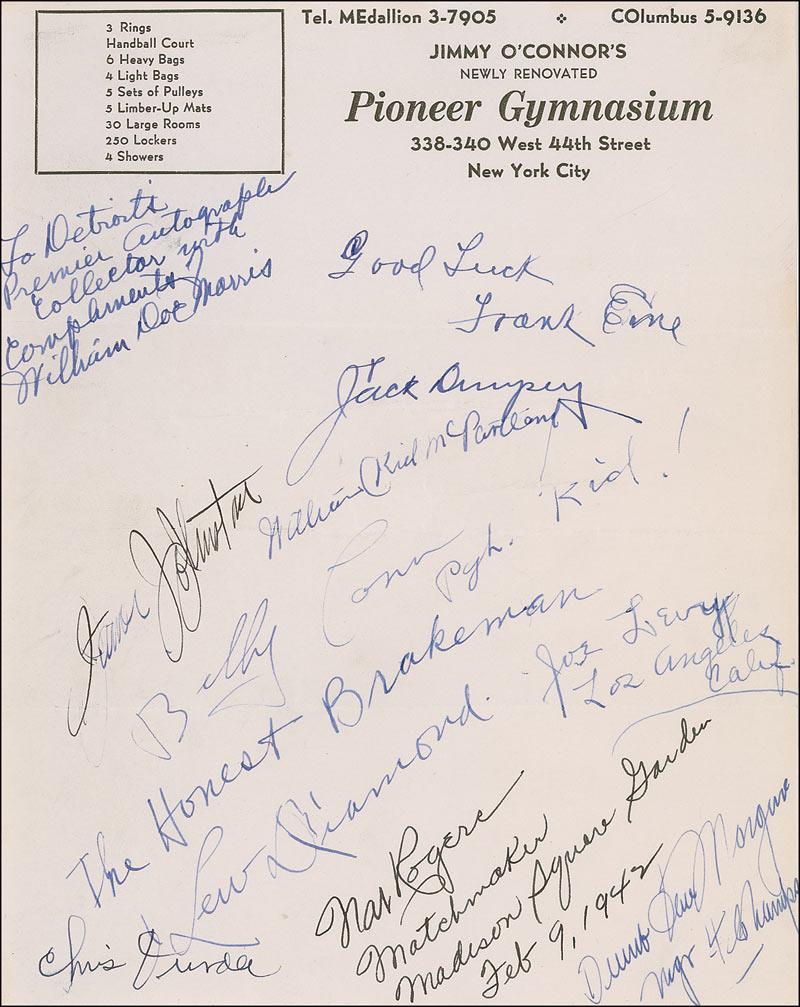 3 Rings
Handball Court
6 Heavy Bags
4 Light Bags
5 Sets of Pulleys
5 Limber-Up Mats
30 Large Rooms
250 Lockers
4 Showers
Tel. MEdallion 3-7905 COlumbus 5-9136
JIMMY O'CONNOR'S
NEWLY RENOVATED
Pioneer Gymnasium
338-340 West 44th Street
New York City
To Detroit's
Premier Autograph
Collector with
Compliments
William Doc Morris
Good Luck
Frank Erne
Jack Dempsey
William (Kid McPartland
James Johnston
Billy Conn
Pgh. Kid!
The Honest Brakeman
Lew Diamond.
Joe Levy
Los Angeles
Calif.
Nat Rogers
Matchmaker
Madison Square Garden
Feb 9, 1942
Chris Dundee
Dumb Dan Morgan
Mgr 4 Champs